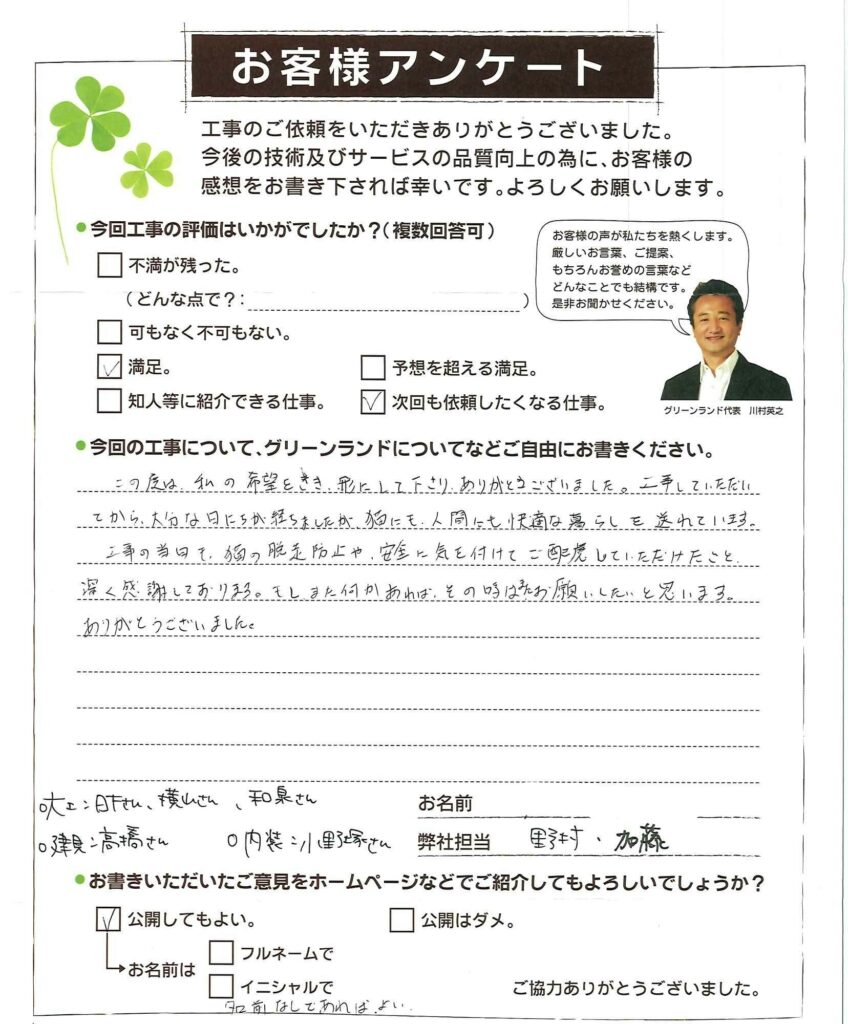 お客様アンケート
工事のご依頼をいただきありがとうございました。
今後の技術及びサービスの品質向上の為に、お客様の
感想をお書き下されば幸いです。よろしくお願いします。
今回工事の評価はいかがでしたか?(複数回答可)
不満が残った。
(どんな点で?: )
可もなく不可もない。
満足。
予想を超える満足。
知人等に紹介できる仕事。
次回も依頼したくなる仕事。
お客様の声が私たちを熱くします。
厳しいお言葉、ご提案、
もちろんお誉めの言葉など
どんなことでも結構です。
是非お聞かせください。
グリーンランド代表 川村英之
今回の工事について、グリーンランドについてなどご自由にお書きください。
この度は、私の希望をきき、形にして下さり、ありがとうございました。工事していただい
てから、大分な日にちが経ちましたが、猫にも、人間にも快適な暮らしを送れています。
工事の当日で、猫の脱走防止や、安全に気を付けてご配慮していただけたこと、
深く感謝しております。もし、また何かあれば、その時はお願いしたいと思います。
ありがとうございました。
○大工:日下さん、横山さん、和泉さん
○建具:高橋さん
○内装:小野塚さん
お名前
弊社担当 野村・加藤
お書きいただいたご意見をホームページなどでご紹介してもよろしいでしょうか?
公開してもよい。
公開はダメ。
お名前は
フルネームで
イニシャルで
名前なしであれば、よい。
ご協力ありがとうございました。